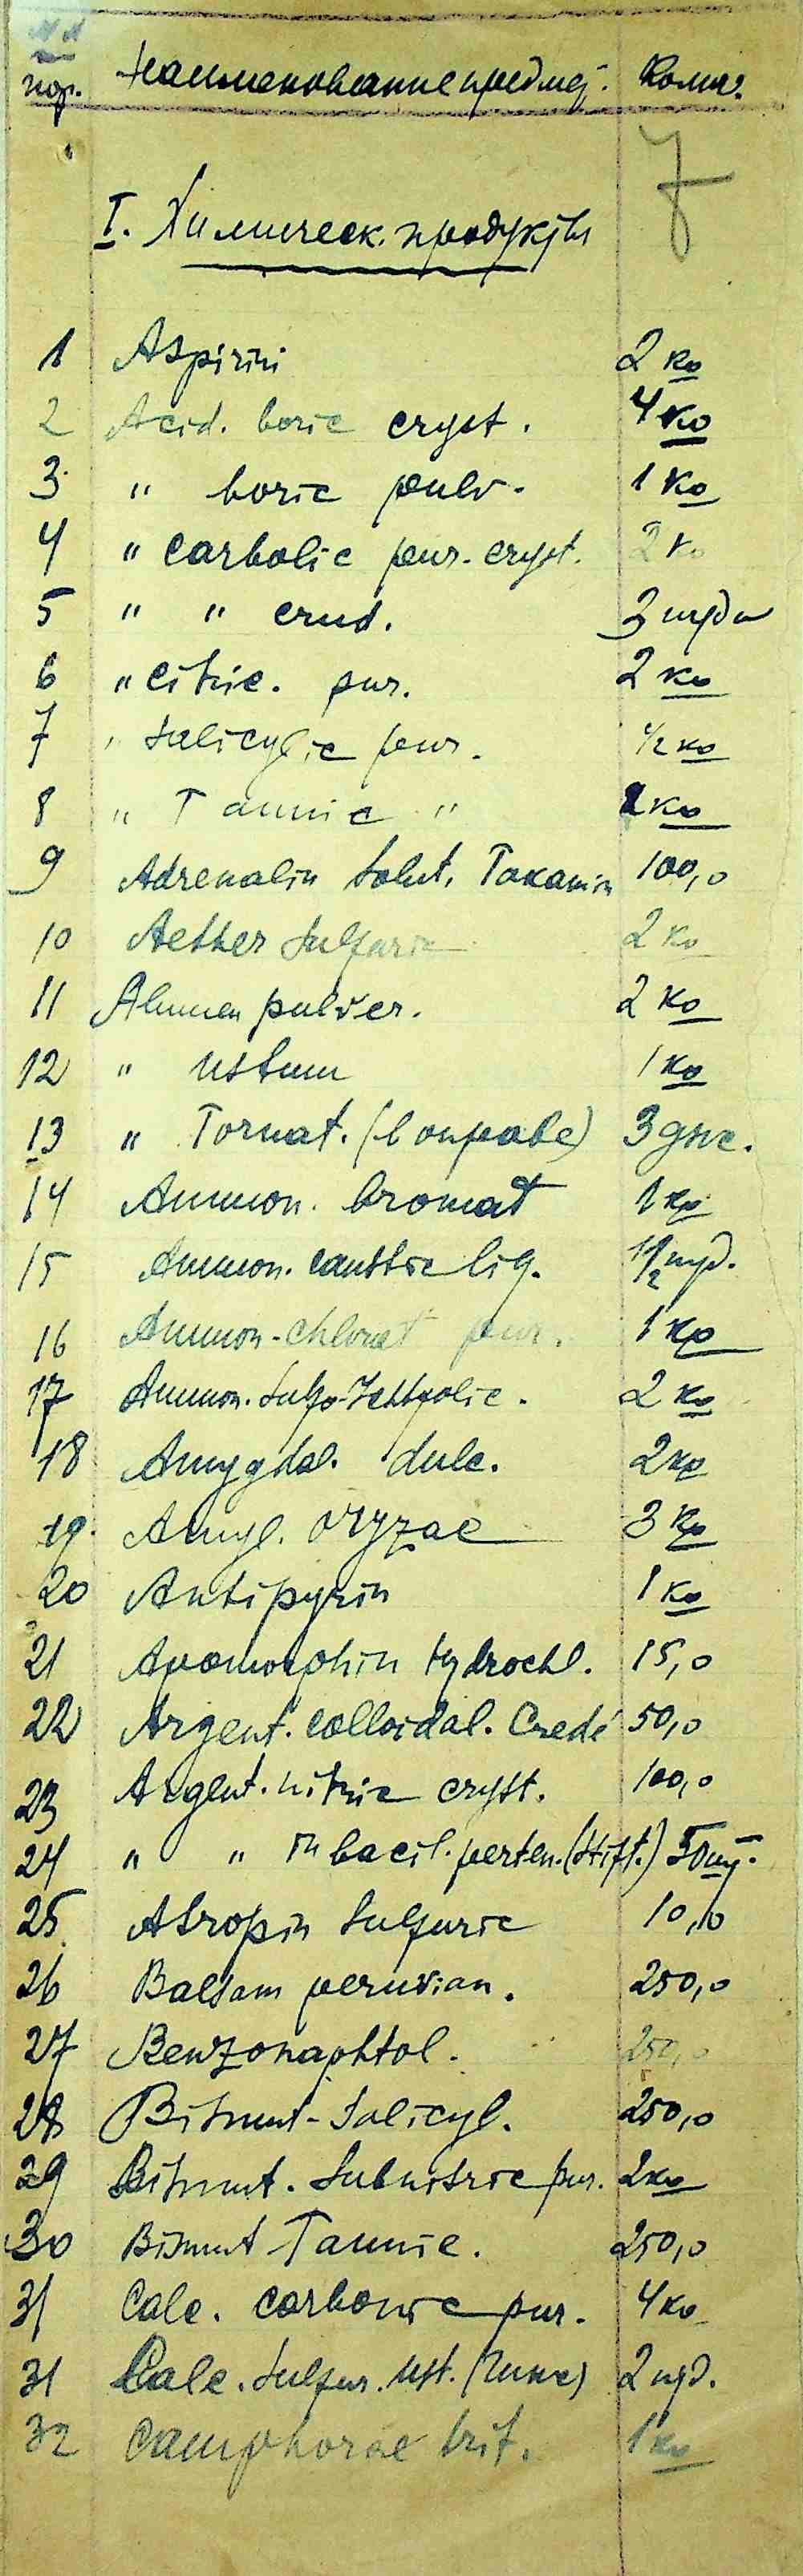 №№ пор. Наименование предмет. Колич.
7
I. Химическ. продукты
1 Aspirini 2 ко
2 Acid. boric cryst. 4 ко
3 " boric pulv. 1 ко
4 " carbolic pur. cryst. 2 ко
5 " " crud. 3 пуда
6 " citric. pur. 2 ко
7 " Salicylic pur. 1/2 ко
8 " Tannic " ко
9 Adrenalin Solut. Takamin 100,0
10 Aether Sulfuric 2 ко
11 Alumen pulver. 2 ко
12 " ustum 1 ко
13 " Tornat. (в оправе) 3 дюж.
14 Ammon. bromat 1 ко
15 Ammon. caustic liq. 1 1/2 пуд.
16 Ammon-chlorat pur. 1 ко
17 Ammon. Sulfo-Ichtyolic. 2 ко
18 Amygdal. dulc. 2 ко
19. Amyl. oryzae 3 ко
20 Antipyrin 1 ко
21 Apomorphin hydrochl. 15,0
22 Argent. colloidal. Credé 50,0
23 Argent. nitric cryst. 100,0
24 " " in bacil. perten. (Stift.) 50 шт.
25 Atropin Sulfuric 10,0
26 Balsam peruvian. 250,0
27 Benzonaphtol. 250,0
28 Bismut-Salicyl. 250,0
29 Bismut. Subnitric pur. 2 ко
30 Bismut Tannic. 250,0
31 Calc. carbonic pur. 4 ко
31 Calc. Sulfur. ust. (Гипс) 2 пуд.
32 Camphorae trit. 1 ко